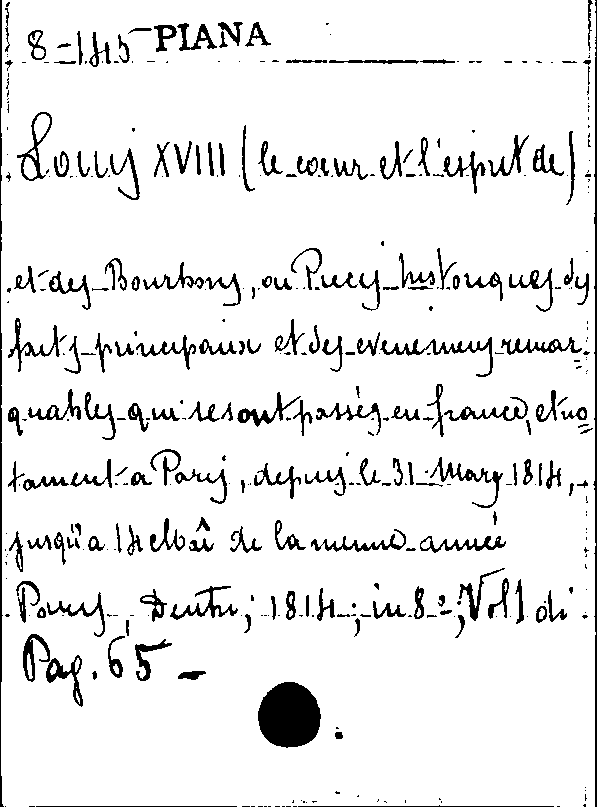 8-145 PIANA
Louis XVIII (le coeur et l'esprit de)
et des Bourbons, ou Precis historiques des
faits principaux et des evenemens remar=
quables qui se sont passés en france, et no=
tament a Paris, depuis le 31 Mars 1814,
jusqu'a 14 de la meme année
Paris, Dentu; 1814; in 8º; Vol 1 di
Pag. 65 -